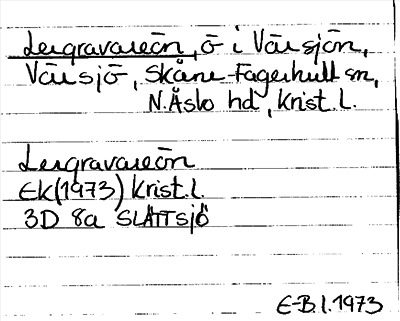 Lergravareön, ö i Vårsjön,
Vårsjö, Skåne-Fagerhult sn,
N.Åsbo hd, Krist. l.
Lergravareön
Ek(1973) Krist. l.
3D 8a SLÄTTSJÖ
E-B.l.1973